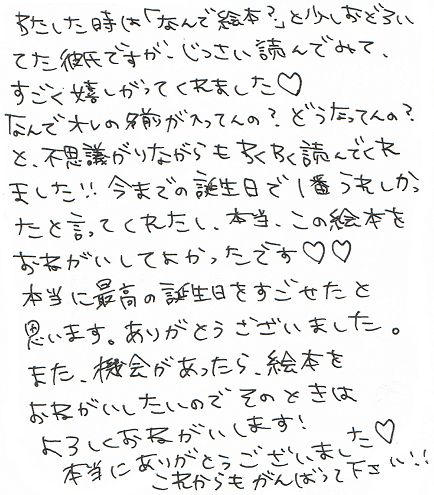 わたした時は「なんで絵本?」と少しおどろい
てた彼氏ですが、じっさい読んでみて、
すごく嬉しがってくれました♡
なんでオレの名前が入ってんの?どうなってんの?
と、不思議がりながらもわくわく読んでくれ
ました!!今までの誕生日で1番うれしかっ
たと言ってくれたし、本当、この絵本を
おねがいしてよかったです♡♡
本当に最高の誕生日をすごせたと
思います。ありがとうございました。
また、機会があったら、絵本を
おねがいしたいのでそのときは
よろしくおねがいします!
本当にありがとうございました♡
これからもがんばって下さい!!